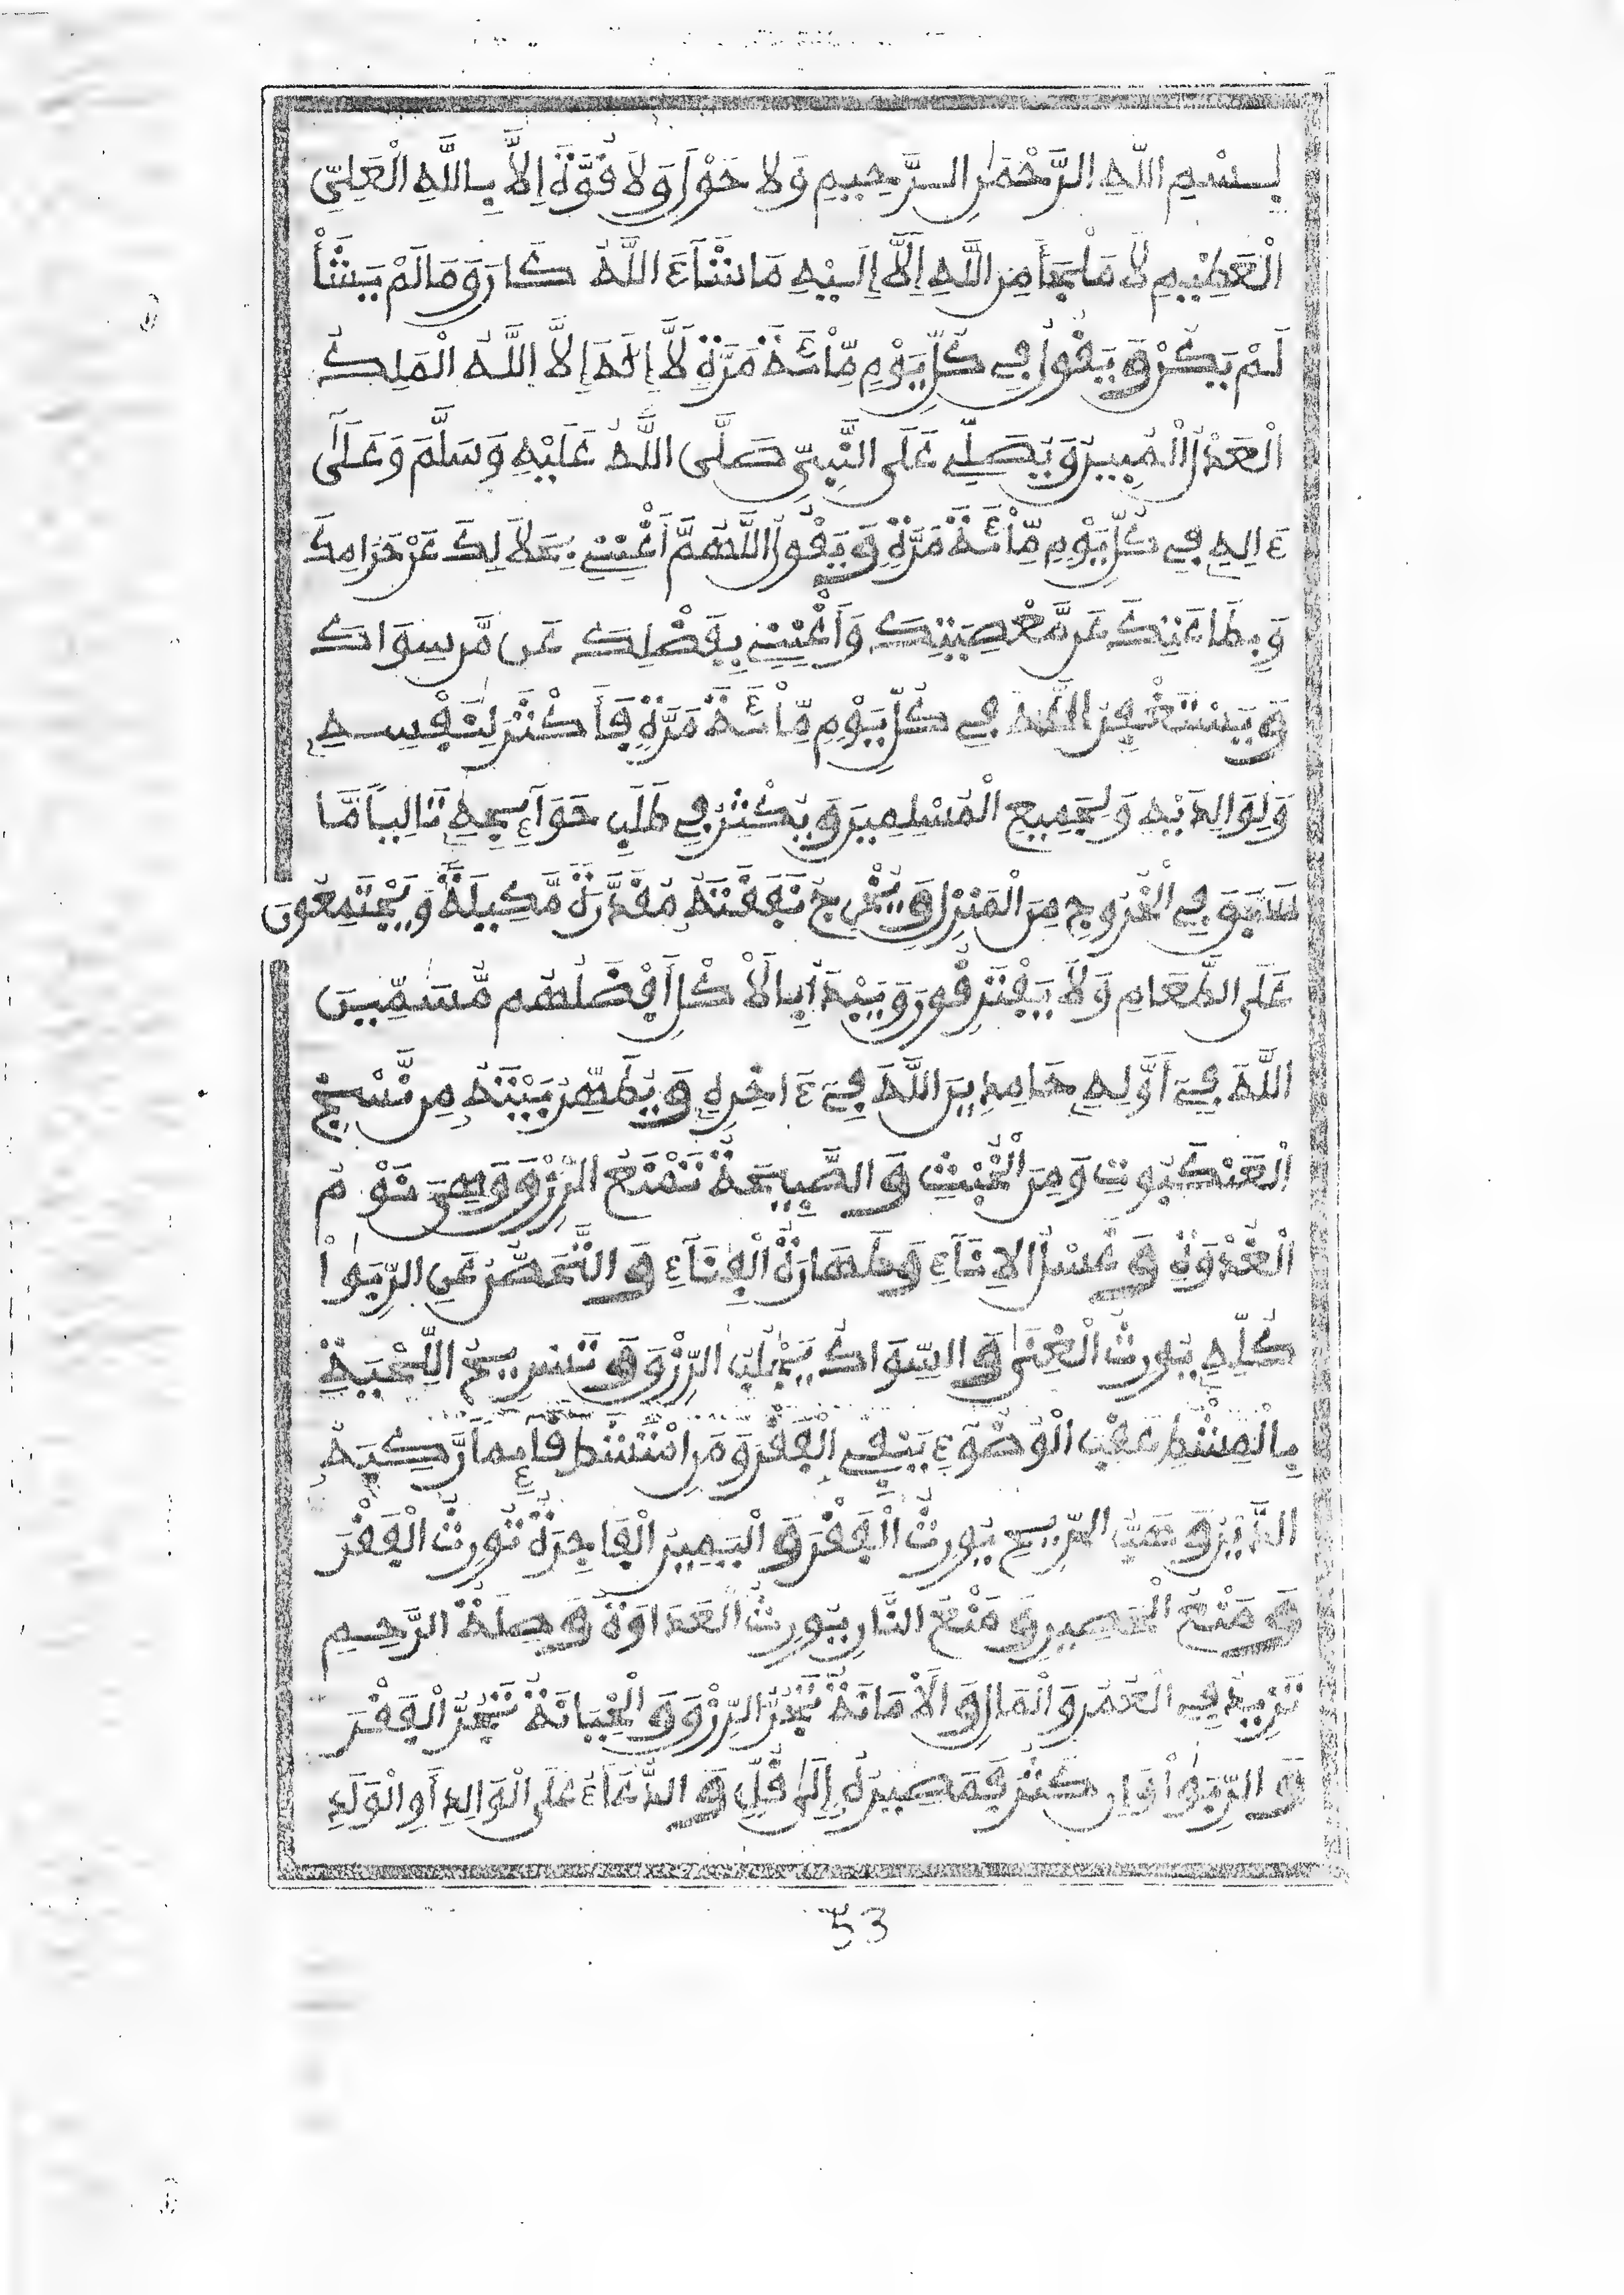 بِسْمِ اللَّهِ الرَّحْمَٰنِ الرَّحِيمِ وَلَا حَوْلَ وَلَا قُوَّةَ إِلَّا بِاللَّهِ الْعَلِيِّ
الْعَظِيمِ لَا مَلْجَأَ مِنَ اللَّهِ إِلَّا إِلَيْهِ مَا شَآءَ اللَّهُ كَانَ وَمَا لَمْ يَشَأْ
لَمْ يَكُنْ وَيَقُولُ فِي كُلِّ يَوْمٍ مِّائَةَ مَرَّةٍ لَّا إِلَٰهَ إِلَّا اللَّهُ الْمَلِكُ
الْعَدْلُ الْمُبِينُ وَيُصَلِّي عَلَى النَّبِيِّ صَلَّى اللَّهُ عَلَيْهِ وَسَلَّمَ وَعَلَىٰ
ءَالِهِ فِي كُلِّ يَوْمٍ مِّائَةَ مَرَّةٍ وَيَقُولُ اللَّهُمَّ أَغْنِنِي بِحَلَالِكَ عَنْ حَرَامِكَ
وَبِطَاعَتِكَ عَن مَّعْصِيَتِكَ وَأَغْنِنِي بِفَضْلِكَ عَن مَّن سِوَاكَ
وَيَسْتَغْفِرُ اللَّهَ فِي كُلِّ يَوْمٍ مِّائَةَ مَرَّةٍ فَأَكْثَرَ لِنَفْسِهِ
وَلِوَالِدَيْهِ وَلِجَمِيعِ الْمُسْلِمِينَ وَيُكْثِرُ فِي طَلَبِ حَوَآئِجِهِ تَالِيًا مَّا
سَبَقَ فِي الْخُرُوجِ مِنَ الْمَنْزِلِ وَيُخْرِجُ نَفَقَتَهُ مُقَدَّرَةً مَّكِيلَةً وَيَجْتَمِعُونَ
عَلَى الطَّعَامِ وَلَا يَفْتَرِقُونَ وَيَبْدَأُ بِالْأَكْلِ أَفْضَلُهُم مُّسَمِّينَ
اللَّهَ فِيٓ أَوَّلِهِ حَامِدِينَ اللَّهَ فِيٓ ءَاخِرِهِ وَيُطَهِّرُ بَيْتَهُ مِن نَّسْجِ
الْعَنْكَبُوتِ وَمِنَ الْخُبْثِ وَالصُّبْحَةُ تَمْنَعُ الرِّزْقَ وَهِيَ نَوْمُ
الْغُدْوَةِ وَغَسْلُ الْإِنَآءِ وَطَهَارَةُ الْفِنَآءِ وَالتَّحَصُّنُ عَنِ الرِّبَوٰاْ
كُلِّهِ يُورِثُ الْغِنَىٰ وَالسِّوَاكُ يَجْلُبُ الرِّزْقَ وَتَسْرِيحُ اللِّحْيَةِ
بِالْمِشْطِ عَقْبَ الْوُضُوٓءِ يَنْفِي الْفَقْرَ وَمَنِ امْتَشَطَ قَآئِمًا رَّكِبَهُ
الدَّيْنُ وَهَبُّ الرِّيحِ يُورِثُ الْفَقْرَ وَالْيَمِينُ الْفَاجِرَةُ تُورِثُ الْفَقْرَ
وَمَنْعُ الْخَمِيرِ وَمَنْعُ النَّارِ يُورِثُ الْعَدَاوَةَ وَصِلَةُ الرَّحِيمِ
تَزِيدُ فِي الْعُمُرِ وَالْمَالِ وَالْأَمَانَةُ تَجُرُّ الرِّزْقَ وَالْخِيَانَةُ تَجُرُّ الْفَقْرَ
وَالرِّبَوٰاْ وَإِن كَثُرَ فَمَصِيرُهُ إِلَىٰ قُلٍّ وَالدُّعَآءُ عَلَى الْوَالِدِ أَوِ الْوَلَدِ
53